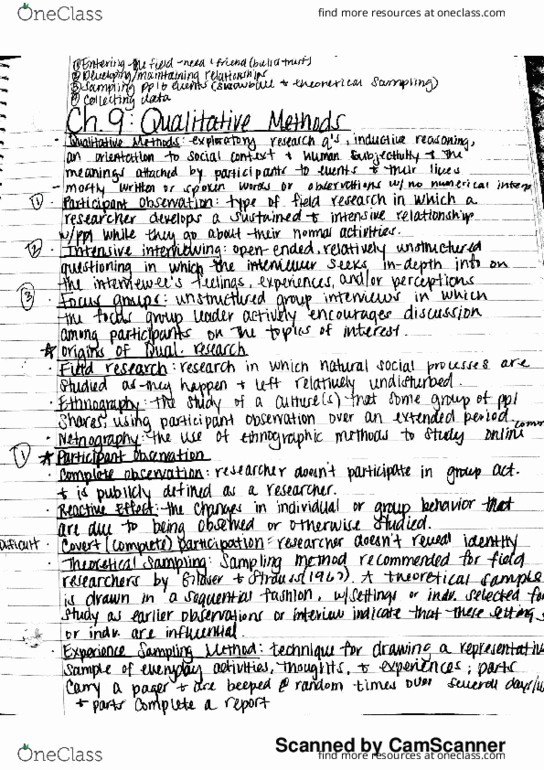 OneClass
find more resources at oneclass.com
① Entering the field - need 1 friend (build trust)
② Developing/maintaining relationships
③ Sampling ppl & events (snowball + theoretical sampling)
④ Collecting data
Ch. 9: Qualitative Methods
· Qualitative Methods: exploratory research q's, inductive reasoning,
an orientation to social context + human subjectivity + the
meanings attached by participants to events + their lives
- mostly written or spoken words or observations w/ no numerical interp
① · Participant Observation: type of field research in which a
researcher develops a sustained + intensive relationship
w/ ppl while they go about their normal activities.
② · Intensive interviewing: open-ended, relatively unstructured
questioning in which the interviewer seeks in-depth info on
the interviewee's feelings, experiences, and/or perceptions
③ · Focus groups: unstructured group interviews in which
the focus group leader actively encourages discussion
among participants on the topics of interest.
★ Origins of Qual. research
· Field research: research in which natural social processes are
studied as they happen + left relatively undisturbed.
· Ethnography: the study of a culture(s) that some group of ppl
shares, using participant observation over an extended period
· Netnography: the use of ethnographic methods to study online comm
① ★ Participant Observation
· Complete observation: researcher doesn't participate in group act.
+ is publicly defined as a researcher.
· Reactive Effect: the changes in individual or group behavior that
are due to being observed or otherwise studied.
difficult · Covert (complete) participation: researcher doesn't reveal identity
· Theoretical Sampling: Sampling method recommended for field
researchers by Glaser + Strauss (1967). A theoretical sample
is drawn in a sequential fashion, w/ settings or indv. selected for
study as earlier observations or interview indicate that these setting s
or indv. are influential.
· Experience Sampling Method: technique for drawing a representative
sample of everyday activities, thoughts, + experiences; parts
carry a pager + are beeped @ random times over several days/
+ parts complete a report
Scanned by CamScanner
OneClass
find more resources at oneclass.com